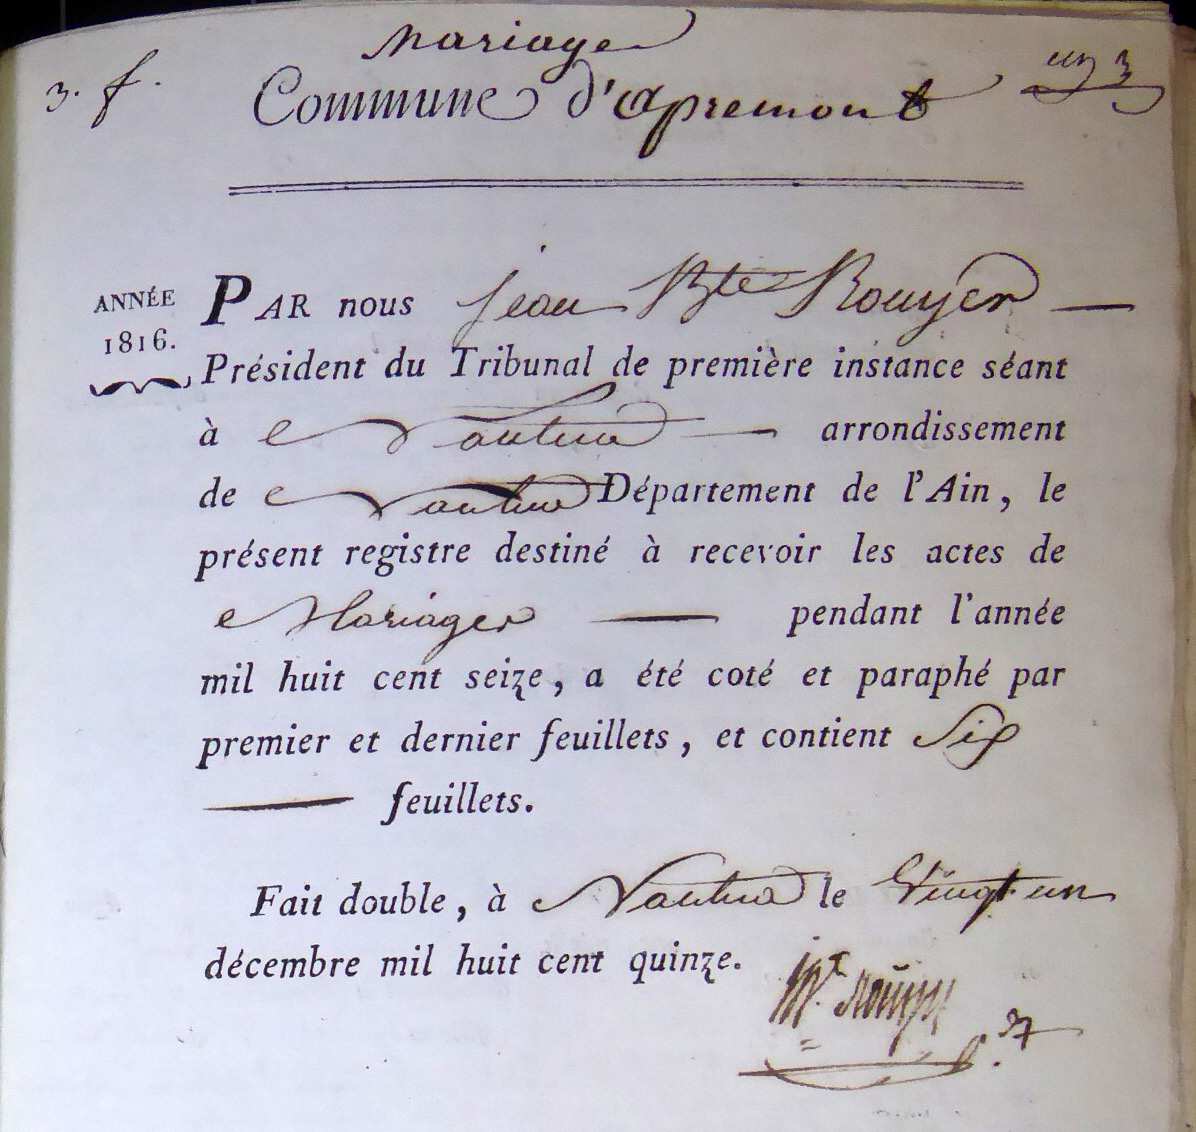 mariage
3. f.
Commune d'apremont
ANNÉE
1816.
PAR nous Jean Bte Rouyer
Président du Tribunal de première instance séant
à Nantua arrondissement
de Nantua Département de l'Ain, le
présent registre destiné à recevoir les actes de
Mariages pendant l'année
mil huit cent seize, a été coté et paraphé par
premier et dernier feuillets, et contient Six
feuillets.
Fait double, à Nantua le Vingt un
décembre mil huit cent quinze.